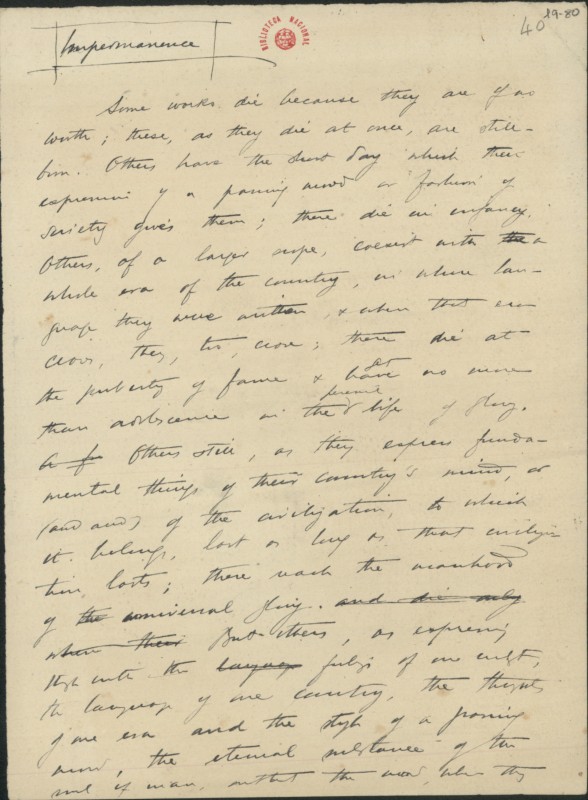 19-80
40
BIBLIOTECA NACIONAL
Impermanence
Some works die because they are of no
worth; these, as they die at once, are still-
born. Others have the short day which their
expression of a passing mood or fashion of
society gives them; these die in infancy.
Others, of a larger scope, coexist with the a
whole era of the country, in whose lan-
guage they were written, & when that era
closes, they, too, close; these die at
the puberty of fame & have get no more
than adolescence in the life of glory.
Others still, as they express funda-
mental things of their country's mind, or
of the civilization, to which
it belongs, last as long as that civiliza-
tion lasts; these reach the manhood
of the universal glory. and die only
when their But others, as expressing
the language of one country, the thoughts
of one era and the style of a passing
mood, the eternal substance of the
soul of man, outlast the mood, when they